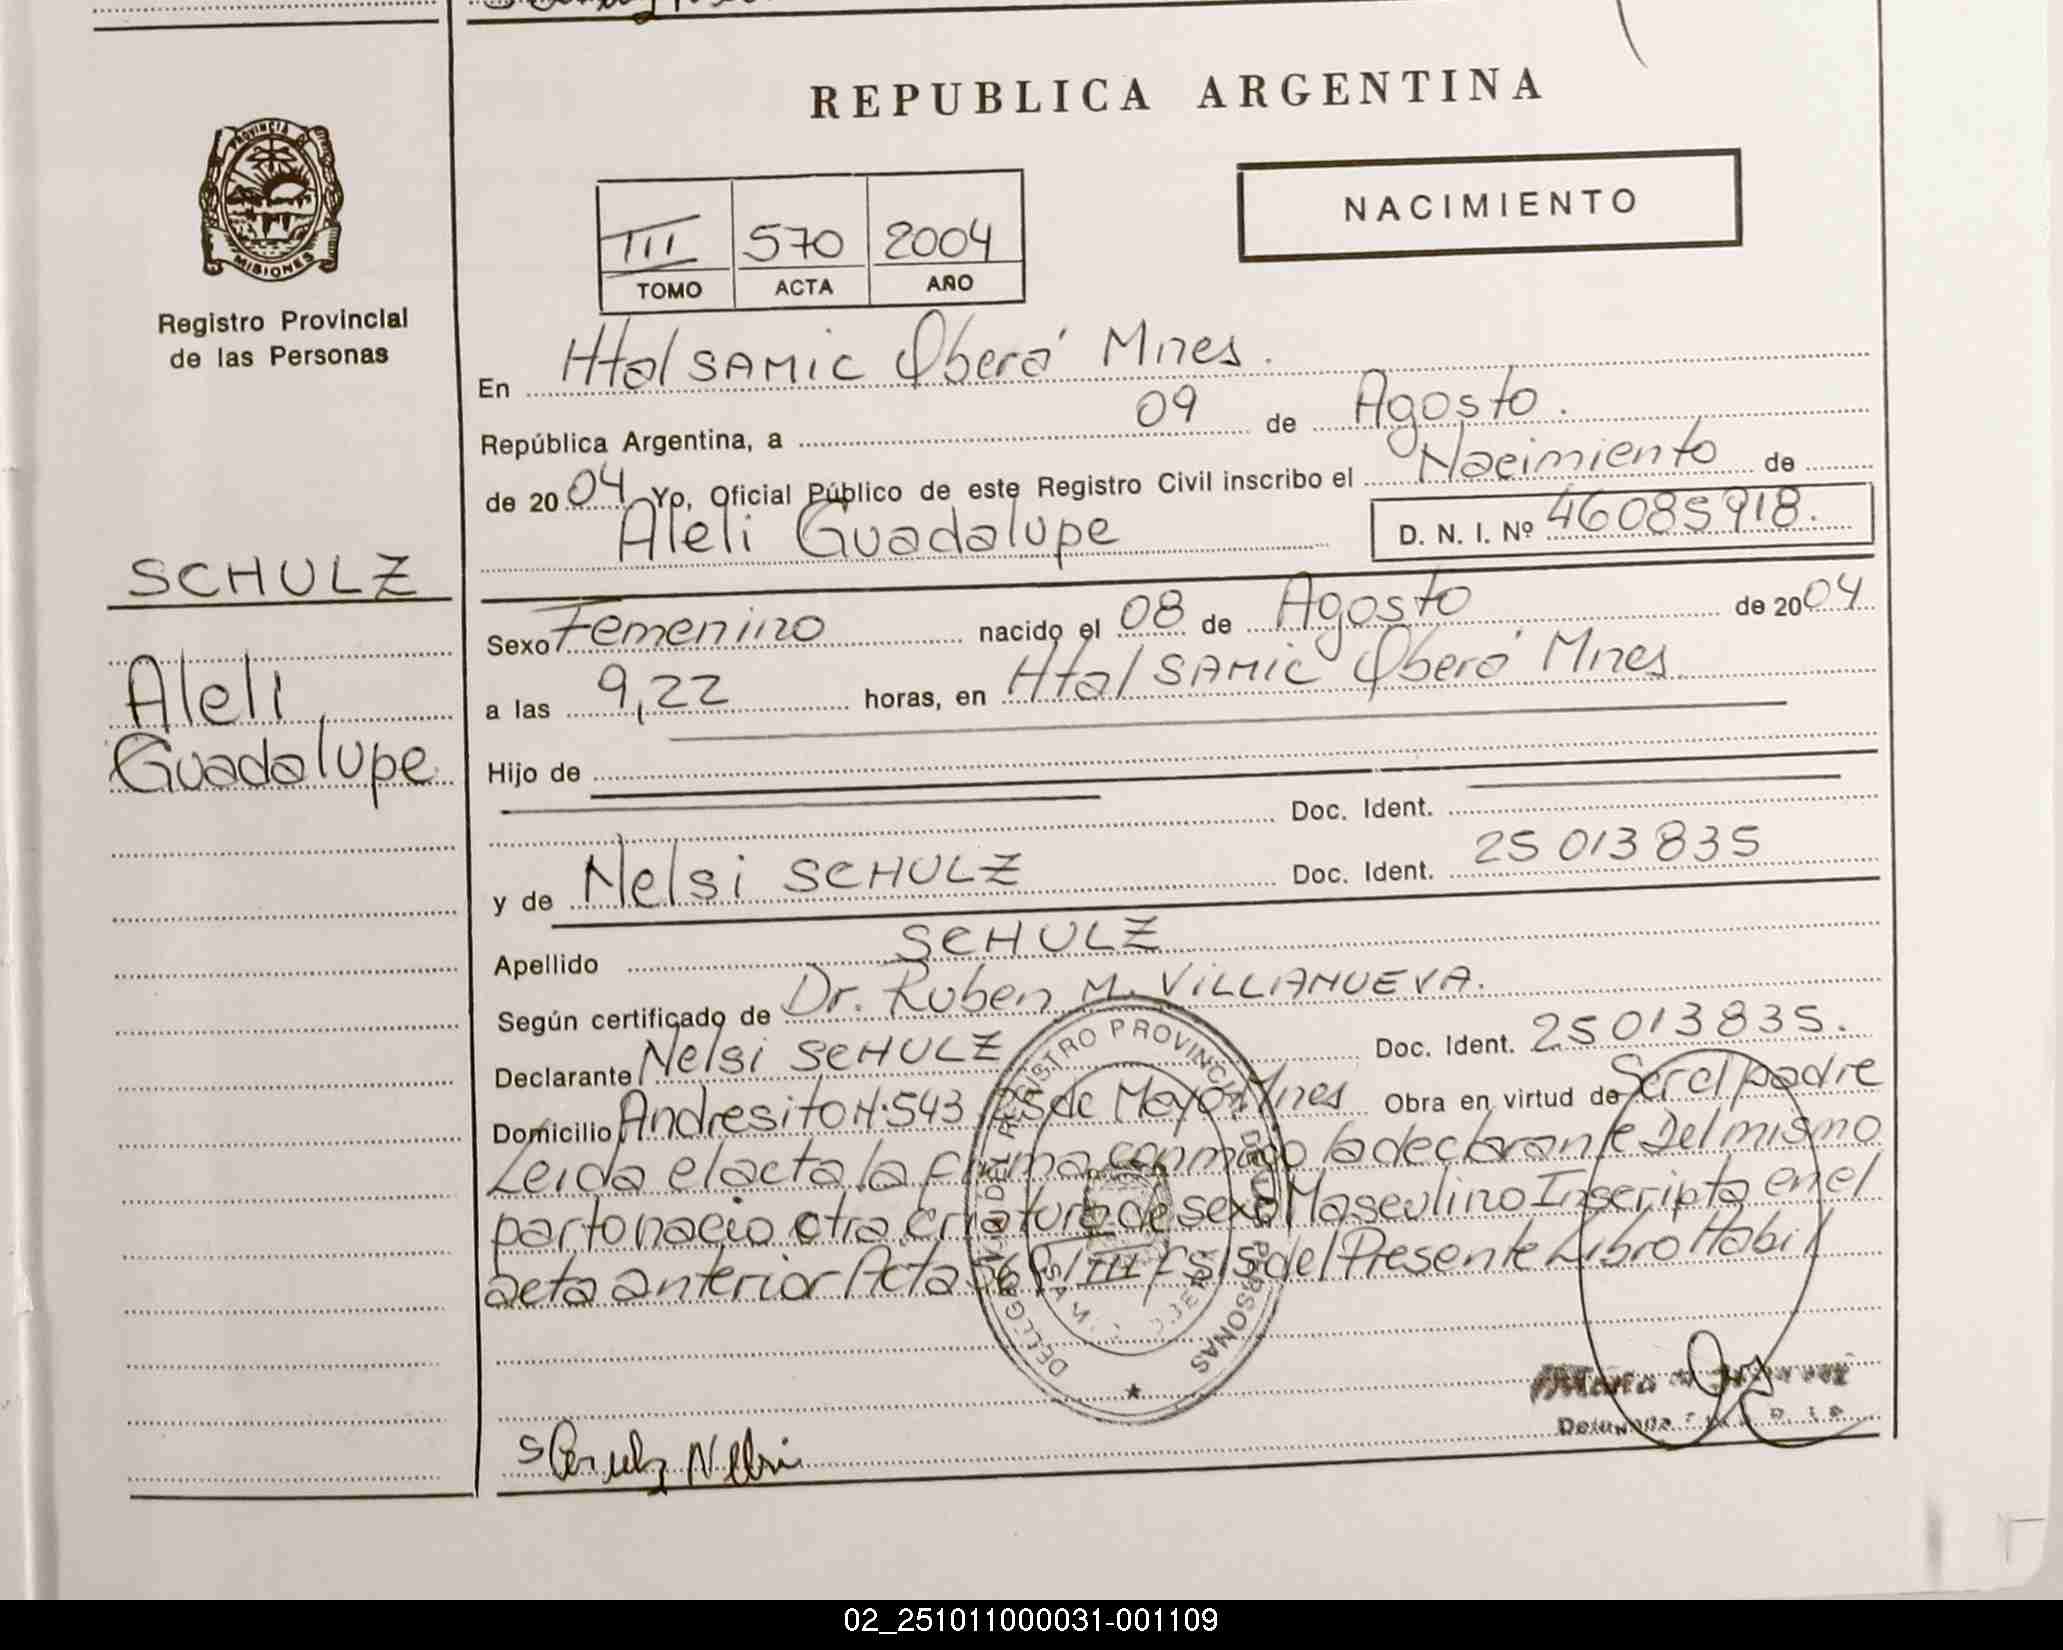 REPUBLICA ARGENTINA
PROVINCIA D
MISIONES
Registro Provincial
de las Personas
NACIMIENTO
III 570 2004
TOMO ACTA AÑO
En Htal SAMIC Oberá Mnes.
República Argentina, a 09 de Agosto.
de 20 04 Yo, Oficial Público de este Registro Civil inscribo el Nacimiento de
Aleli Guadalupe D. N. I. Nº 46085918.
SCHULZ
Aleli
Guadalupe
Sexo Femenino nacido el 08 de Agosto de 20 04
a las 9,22 horas, en Htal SAMIC Oberá Mnes.
Hijo de
Doc. Ident.
y de Nelsi SCHULZ Doc. Ident. 25 013 835
Apellido SCHULZ
Según certificado de Dr. Ruben M. VILLANUEVA.
Declarante Nelsi SCHULZ Doc. Ident. 25 013 835.
Domicilio Andresito H.543 25 de Mayo Mnes Obra en virtud de Ser el padre
Leida el acta la firma conmigo la declarante Del mismo
parto nacio otra criatura de sexo Masculino Inscripta en el
acta anterior Acta III del Presente Libro Habil
REGISTRO PROVINCIAL DE LAS PERSONAS
Schulz Nelsi
02_251011000031-001109